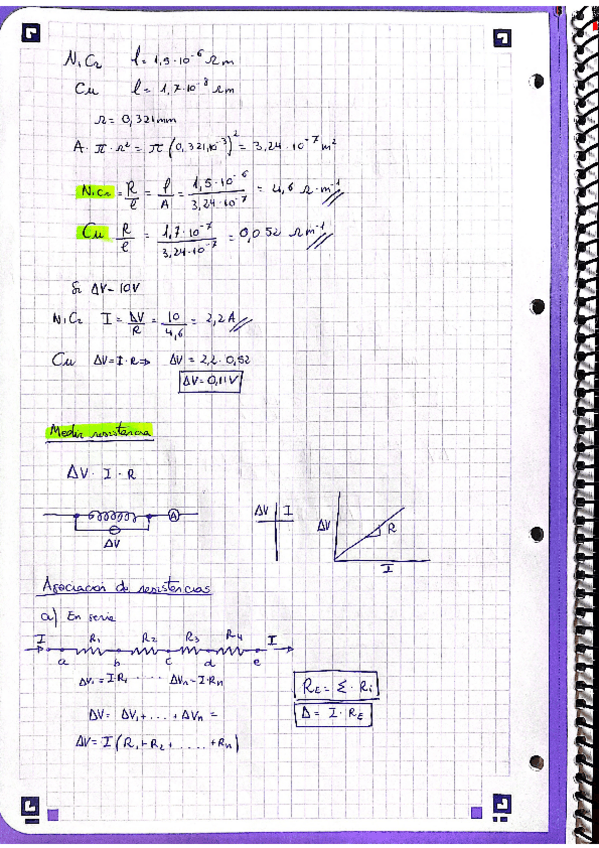 NiCr ρ = 1,5·10^-6 Ωm
Cu ρ = 1,7·10^-8 Ωm
r = 0,321mm
A = π·r² = π(0,321·10^-3)² = 3,24·10^-7 m²
NiCr = R/l = ρ/A = 1,5·10^-6 / 3,24·10^-7 = 4,6 Ω·m^-1
Cu R/l = 1,7·10^-7 / 3,24·10^-7 = 0,052 Ωm^-1
Si ΔV = 10V
NiCr I = ΔV/R = 10/4,6 = 2,2A
Cu ΔV = I·R ⇒ ΔV = 2,2·0,52
ΔV = 0,11V
Medir resistencia
ΔV · I · R
A
ΔV
ΔV I
ΔV R
I
Asociacion de resistencias
a) En serie
I R1 R2 R3 R4 I
a b c d e
ΔV1 = I·R1 ..... ΔVn = I·Rn
RE = Σ·Ri
ΔV = ΔV1 + .... + ΔVn =
Δ = I·RE
ΔV = I(R1 + R2 + ..... + Rn)